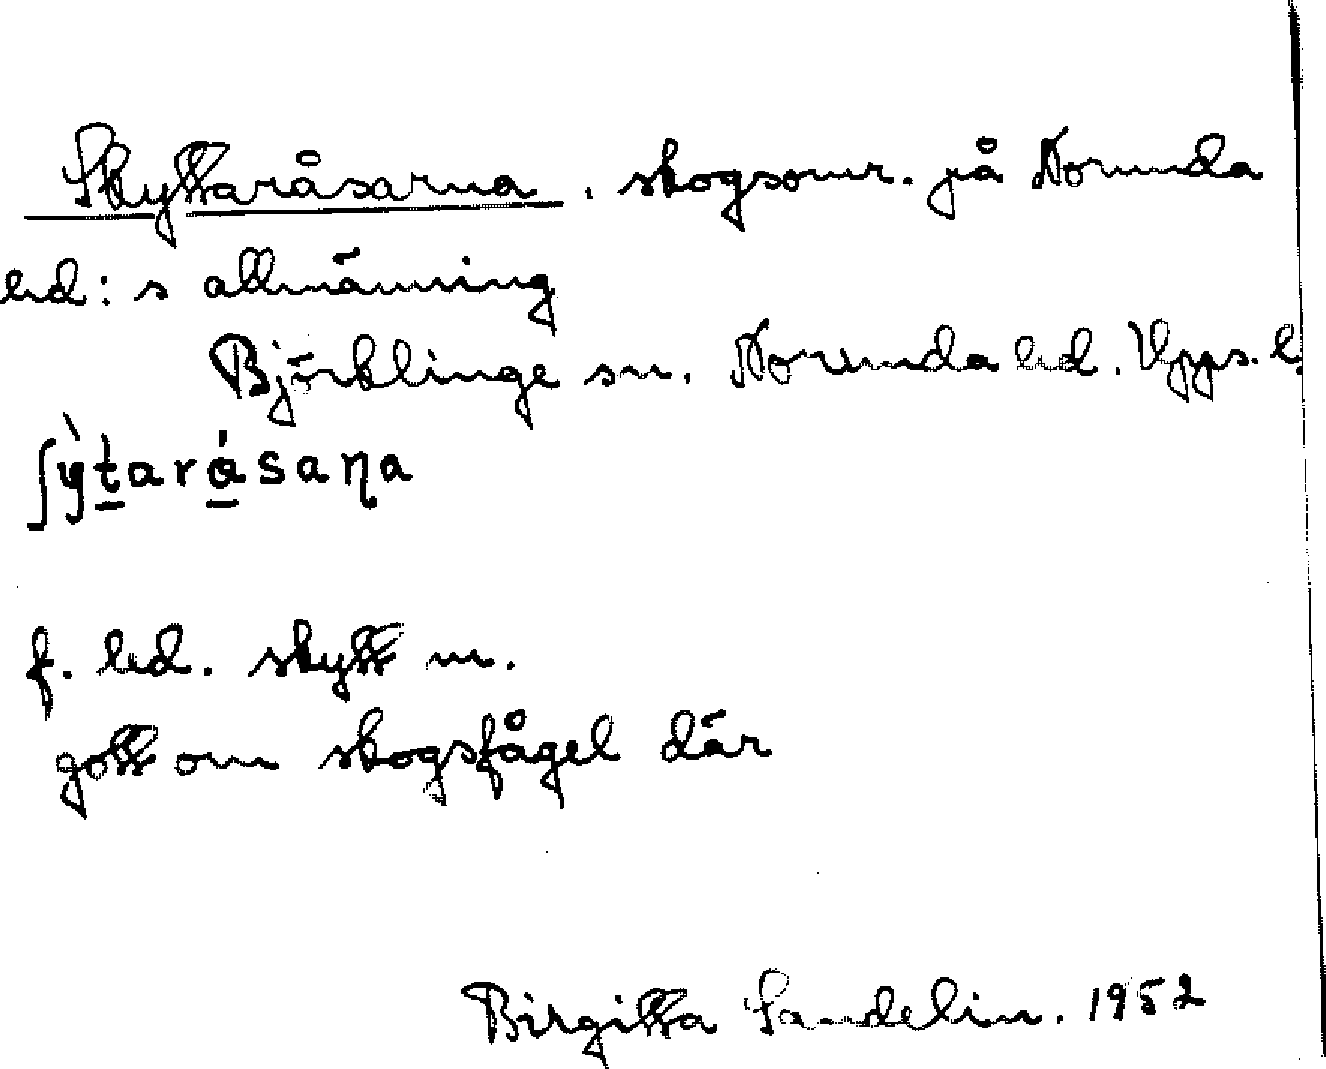 Skyttaråsarna, skogsomr. på Norunda
hd:s allmänning
Björklinge sn. Norunda hd. Upps. l
ʃỳt̲arǻ̲saṇa
f. led. skytt m.
gott om skogsfågel där
Birgitta Sandelin. 1952